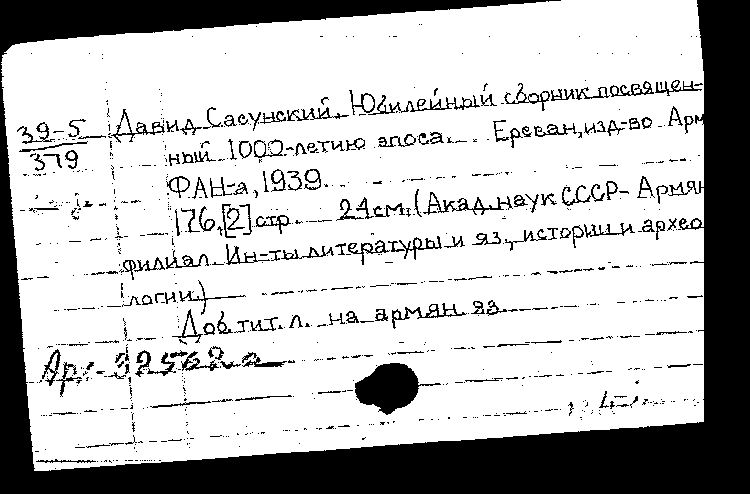 39-5
379
Давид Сасунский. Юбилейный сборник посвящен-
ный 1000-летию эпоса. Ереван, изд-во Арм
ФАН-а, 1939.
176, [2] стр. 24 см. (Акад. наук СССР - Армян
филиал. Ин-ты литературы и яз., истории и архео
логии.)
Доб. тит. л. на армян яз.
Арм-32562а